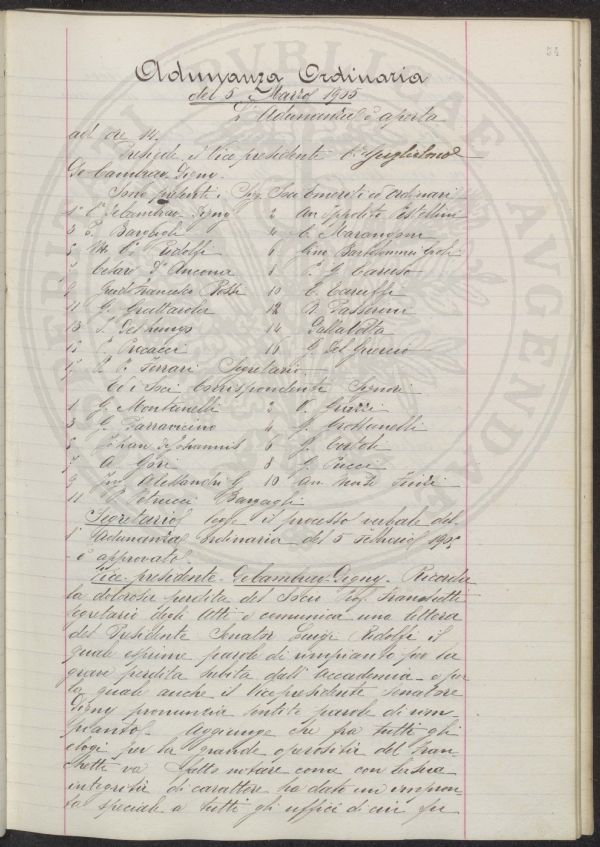 54
Adunanza Ordinaria
del 5 Marzo 1905
L'Adunanza è aperta
ad ore 14.
Presiede il Vice presidente C. Guglielmo
De Cambray Digny.
Sono presenti i Sig. Soci Emeriti ed Ordinari
1 C. De Cambray Digny 2 Ippolito Pestellini
3 P. Bargioli 4 C. Marangoni
5 M. Ridolfi 6 Gino Bartolommei Gioli
7 Cesare D'Ancona 8 Caruso
9 Guido Francesco Rossi 10 C. Caruffi
11 G. Grattarola 12 N. Passerini
13 Del Lungo 14 Dalla Volta
15 Procacci 16 G. Del Guercio
17 Ferrari Segretario
Ed i Soci Corrispondenti Signori
1 G. Montanelli 2 V. Giuzzi
3 G. Parravicino 4 Grottanelli
5 Johannis 6 Bertoli
7 A. Gori 8 Pucci
9 Ing. Alessandri G. 10
11 Petrucci Barzaghi
Segretario legge il processo verbale del-
l'Adunanza Ordinaria del 5 Febbraio 1905
è approvato.
Vice presidente De Cambray Digny. Ricorda
la dolorosa perdita del Socio Prof. Franchetti
Segretario degli Atti e comunica una lettera
del Presidente Senator Luigi Ridolfi il
quale esprime parole di rimpianto per la
grave perdita subita dall'Accademia e per
la quale anche il Vicepresidente Senatore
Digny pronunzia sentite parole di rim-
pianto. Aggiunge che fra tutti gli
elogi per la grande operosità del Fran-
chetti va fatto notare come con la sua
integrità di carattere ha dato un'impron-
ta speciale a tutti gli uffici di cui fu